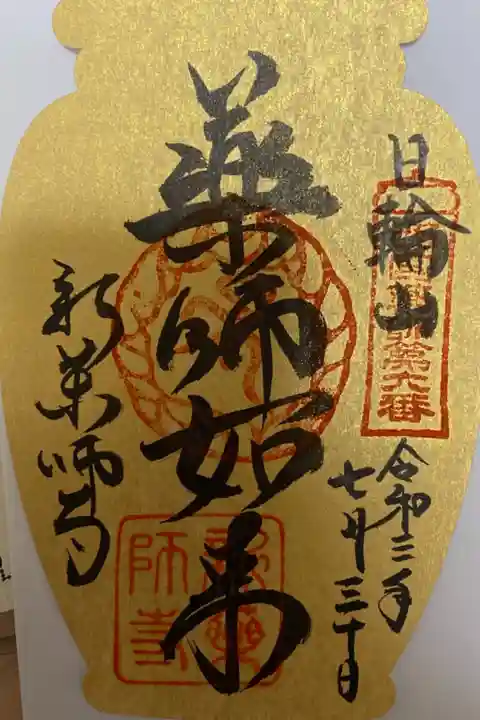 日輪山
令和三年
七月三十日
薬師如来
新薬師寺
第六番